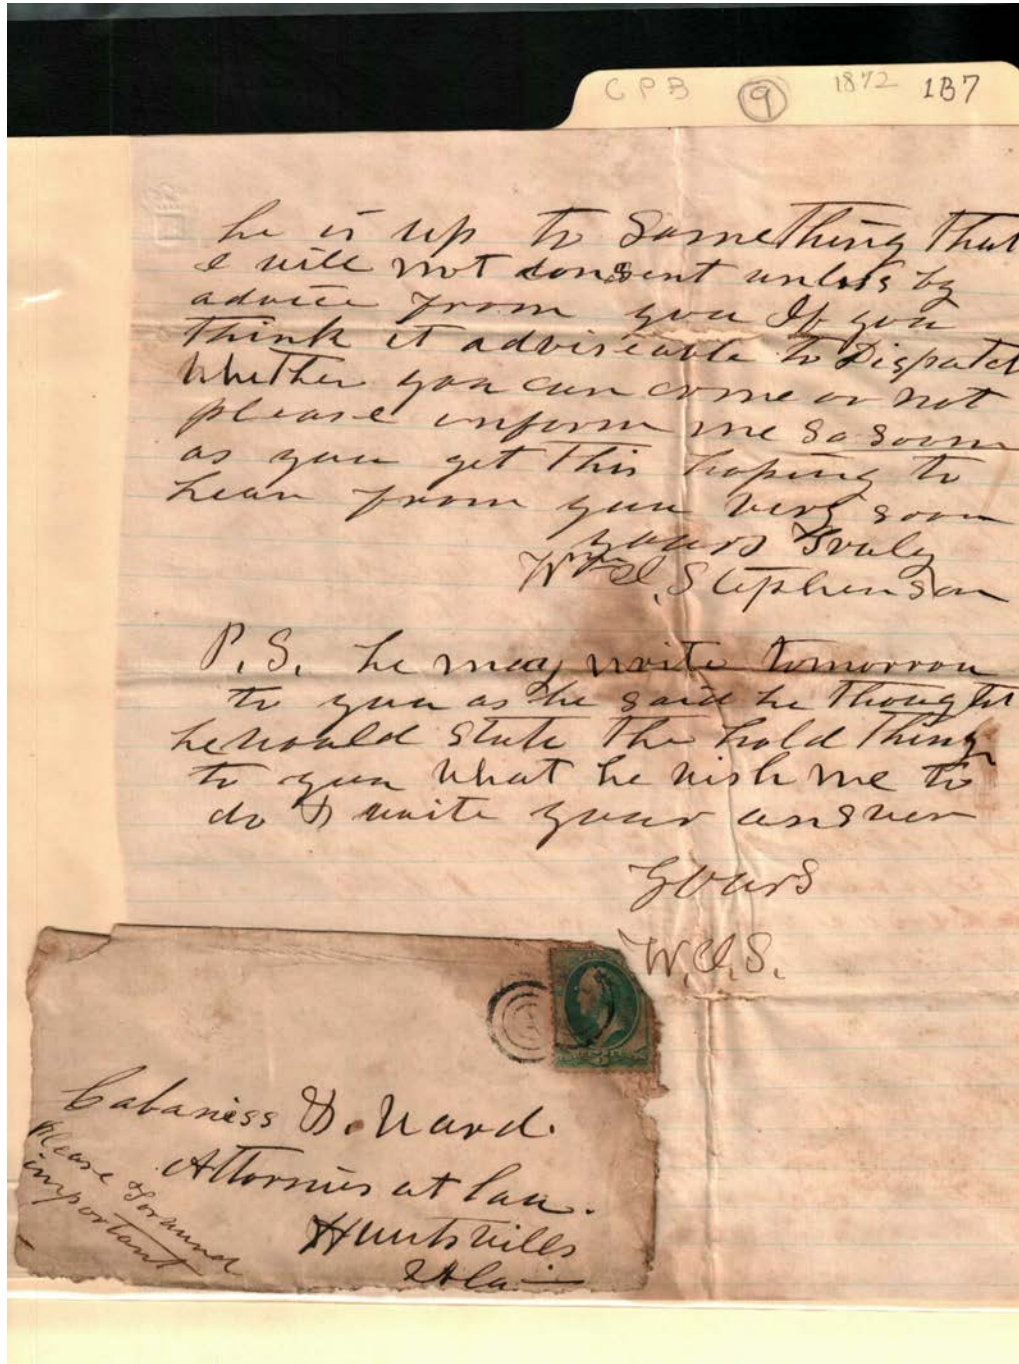 CPB 9 1872 1B7
he is up to Something that
I will not consent unless by
advice from you If you
think it adviseable to Dispatch
Whether you can come or not
please inform me so soon
as you get this hoping to
hear from you very soon
yours Truly
Stephenson
P.S. he may write tomorrow
to you as he said he thought
he would State the hold thing
to you what he wish me to
do & write your answer
Yours
Cabaniss & Ward.
Attornies at Law.
Huntsville
Ala
Please Forward
important